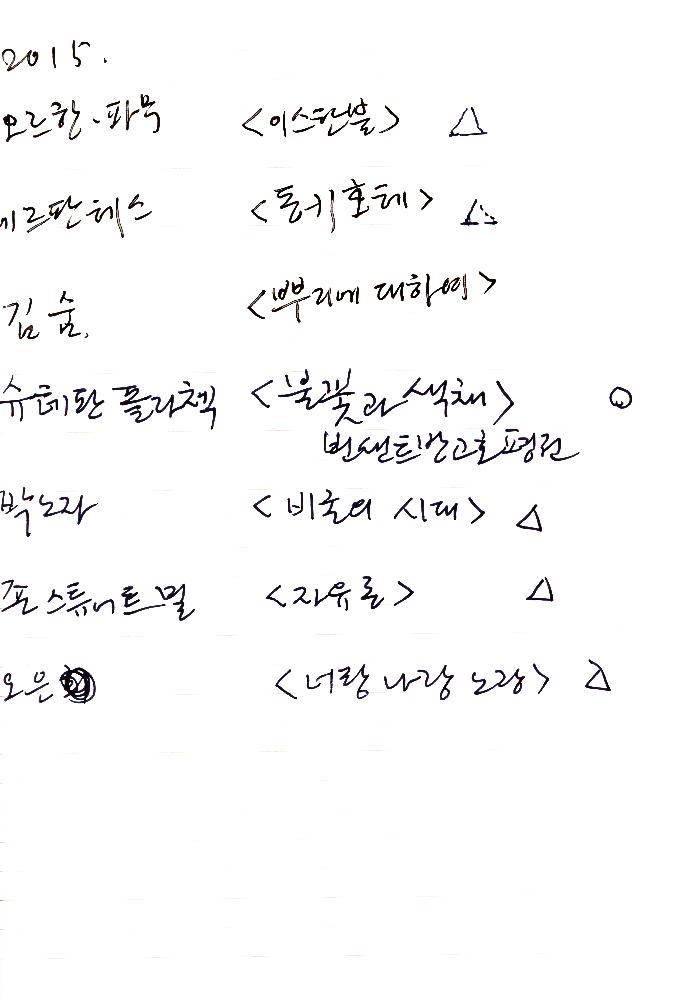 2015.
오르한·파묵 <이스탄불> △
세르판테스 <돈키호테> △
김숨. <뿌리에 대하여>
슈테판 폴라첵 <불꽃과 색채> ○
빈센트 반 고흐 평전
박노자 <비굴의 시대> △
존 스튜어트 밀 <자유론> △
오은 <너랑 나랑 노랑> △